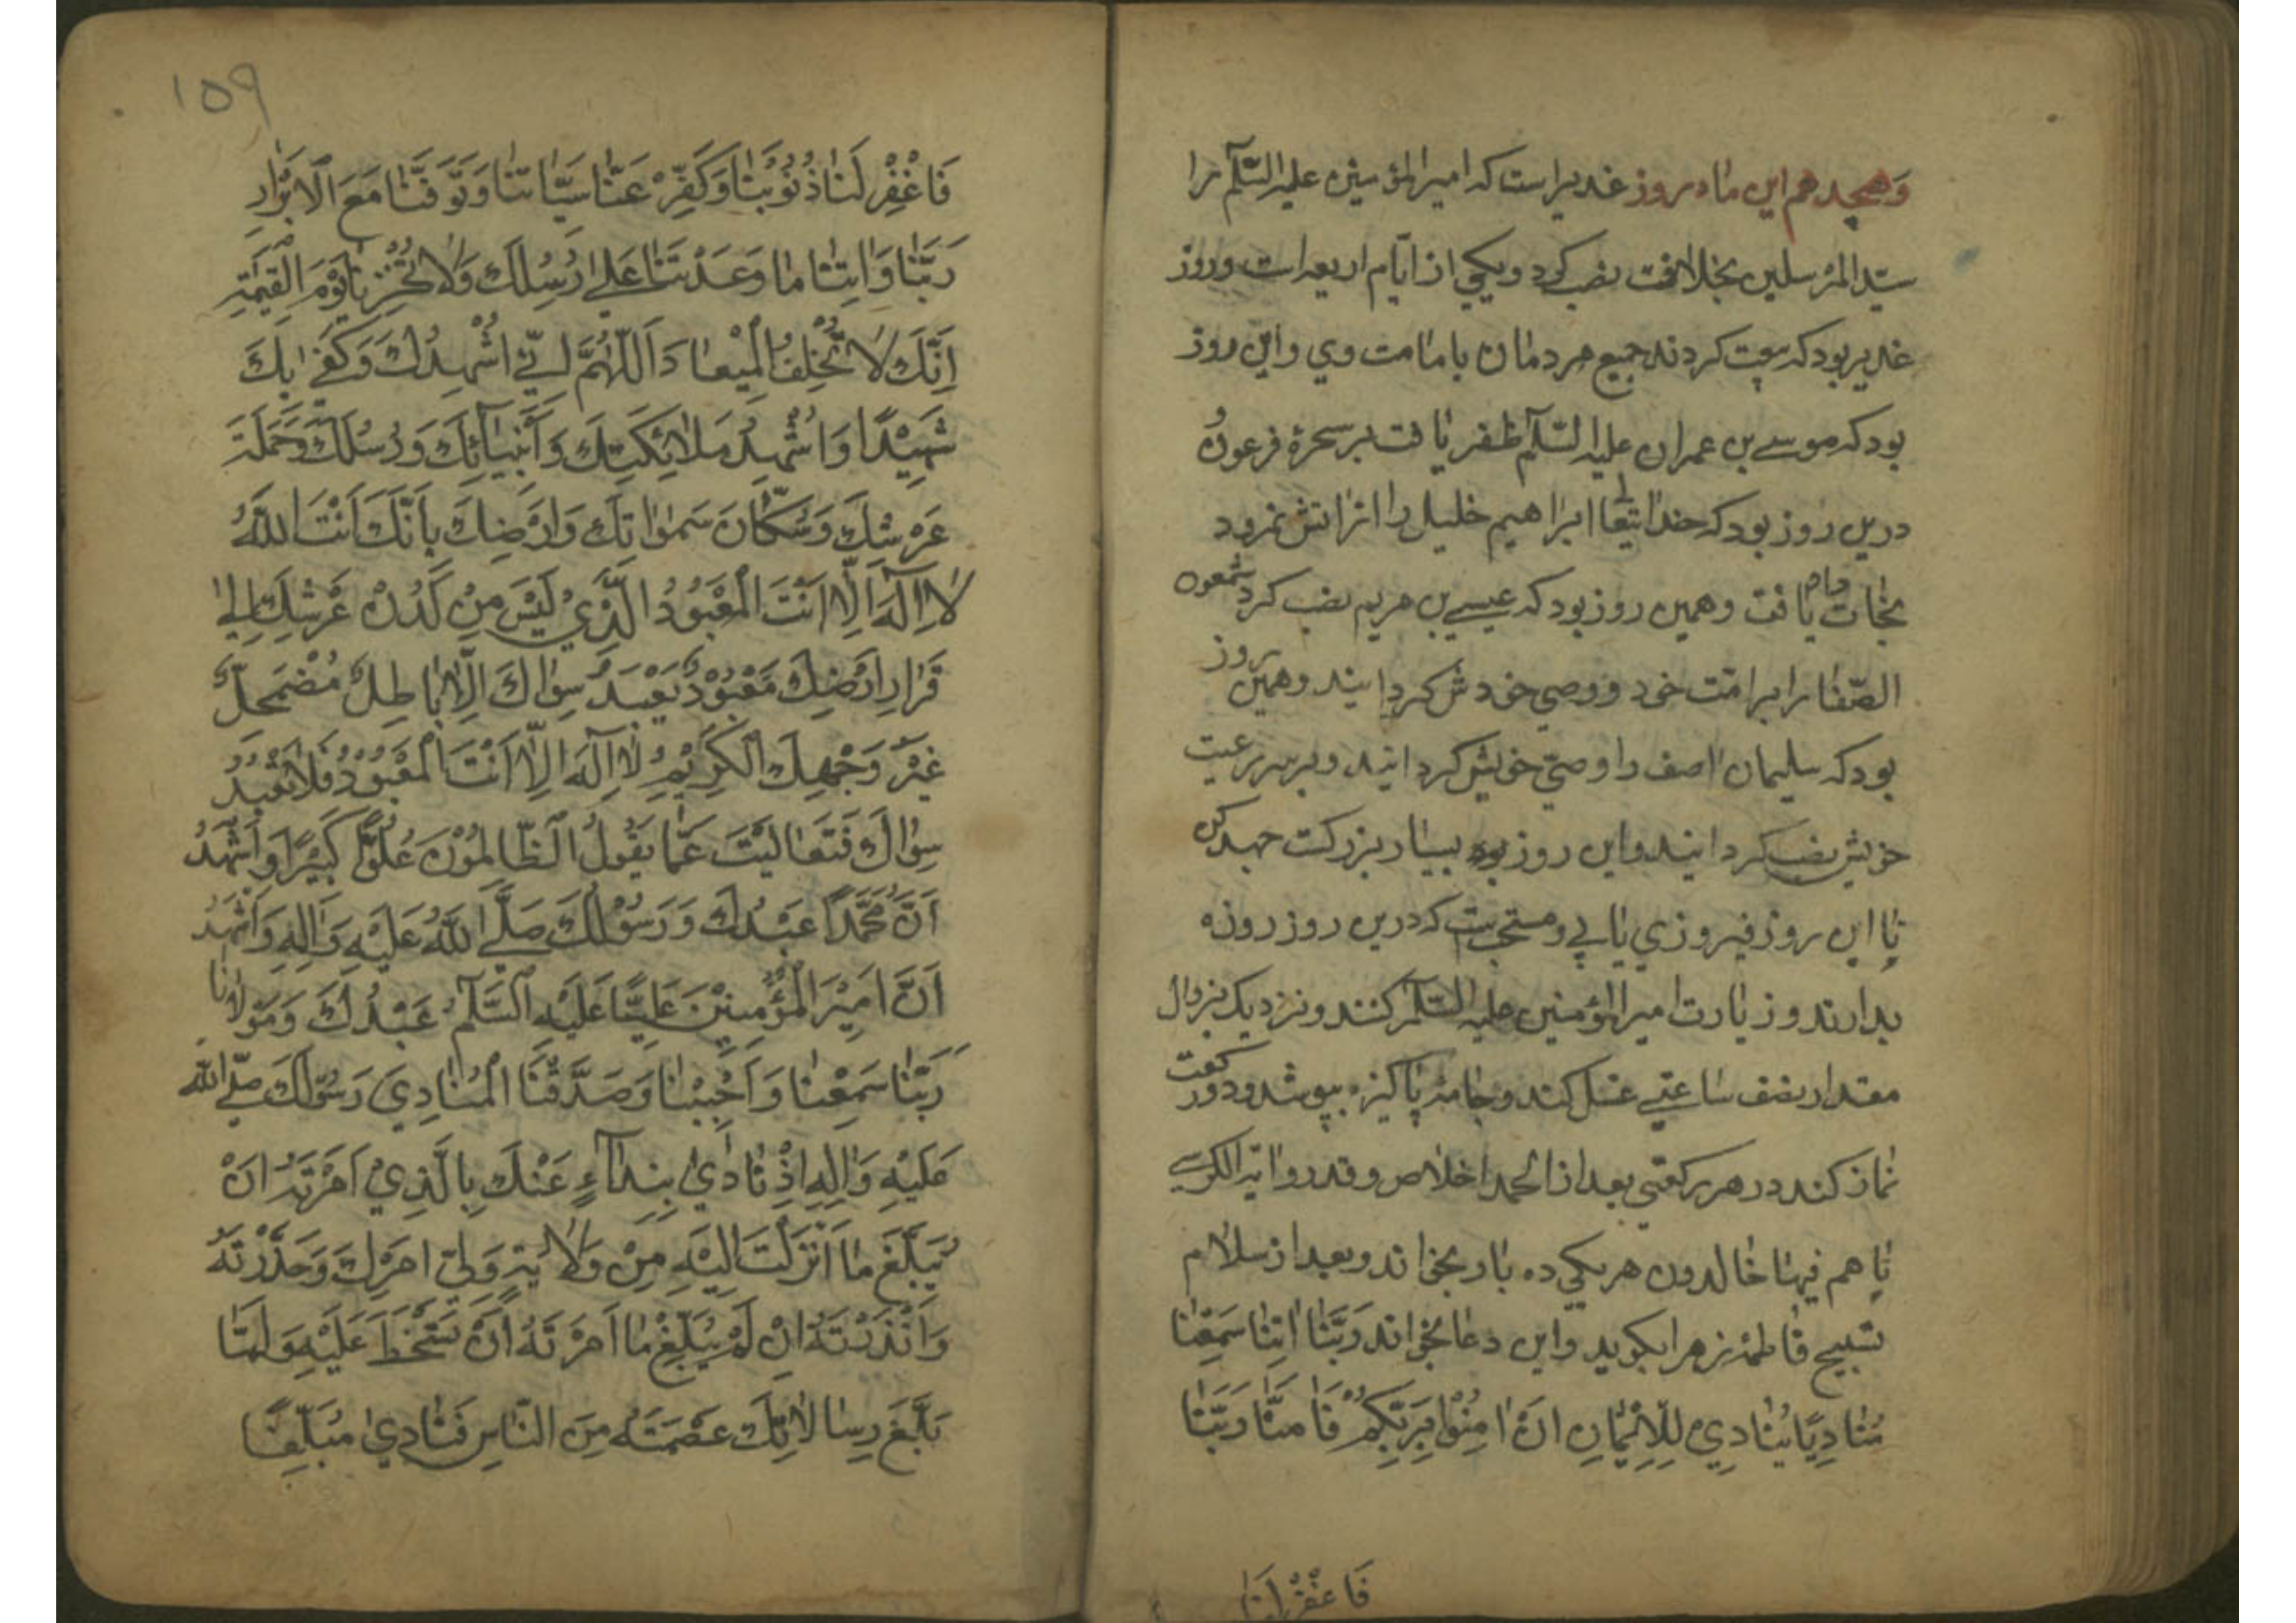 وهجدهم این ماه روز غدیر است که امیر المؤمنین علیه السّلم را
سیّد المرسلین بخلافت نصب کرد و یکی از ایّام اربعه است و روز
غدیر بود که بیعت کردند جمیع مردمان بامامت وی و این روز
بود که موسی بن عمران علیه السّلم ظفر یافت بر سحرهٔ فرعون
درین روز بود که خدایتعا ابراهیم خلیل را از اتش نمرود
نجات یافت و همین روز بود که عیسی بن مریم نصب کرد شمعون
الصّفا را بر امّت خود و وصی خودش کردانیند و همین روز
بود که سلیمان اصف را وصیّ خویش کردانیند و بر سر رعیت
خویش نصب کردانیند و این روز بود بسیار بزرکست جهد کن
تا این روز فیروزی یابی و مستحبست که درین روز روزه
بدارند و زیارت امیر المؤمنین علیه السّلم کنند و نزدیک بزوال
مقدار نصف ساعتی غسل کند و جامهٔ پاکیزه بپوشد و دو رکعت
نماز کند در هر رکعتی بعد از الحمد اخلاص و قدر و ایة الکرسی
تا هم فیها خالدون هر یکی ده بار بخواند و بعد از سلام
تسبیح فاطمهٔ زهرا بکوید و این دعا بخواند رَبَّنَا اِنَّنَا سَمِعْنَا
مُنَادِيًا يُنَادِي لِلْاِيْمَانِ اَنْ اٰمِنُوْا بِرَبِّكُمْ فَاٰمَنَّا رَبَّنَا
فَاغْفِرْ لَنَا
۱۵۹
فَاغْفِرْ لَنَا ذُنُوْبَنَا وَكَفِّرْ عَنَّا سَيِّاٰتِنَا وَتَوَفَّنَا مَعَ الْاَبْرَارِ
رَبَّنَا وَاٰتِنَا مَا وَعَدْتَنَا عَلٰى رُسُلِكَ وَلَا تُخْزِنَا يَوْمَ الْقِيٰمَةِ
اِنَّكَ لَا تُخْلِفُ الْمِيْعَادَ اَللّٰهُمَّ اِنِّي اُشْهِدُكَ وَكَفٰى بِكَ
شَهِيْدًا وَاُشْهِدُ مَلَائِكَتِكَ وَاَنْبِيَآئِكَ وَرُسُلَكَ وَحَمَلَةَ
عَرْشِكَ وَسُكَّانَ سَمٰوَاتِكَ وَاَرْضِكَ بِاَنَّكَ اَنْتَ اللّٰهُ
لَا اِلٰهَ اِلَّا اَنْتَ الْمَعْبُوْدُ الَّذِيْ لَيْسَ مِنْ لَدُنْ عَرْشِكَ اِلٰى
قَرَارِ اَرْضِكَ مَعْبُوْدٌ يُعْبَدُ سِوَاكَ اِلَّا بَاطِلٌ مُضْمَحِلٌّ
غَيْرَ وَجْهِكَ الْكَرِيْمِ لَا اِلٰهَ اِلَّا اَنْتَ الْمَعْبُوْدُ فَلَا نَعْبُدُ
سِوَاكَ فَتَعَالَيْتَ عَمَّا يَقُوْلُ الظَّالِمُوْنَ عُلُوًّا كَبِيْرًا وَاَشْهَدُ
اَنَّ مُحَمَّدًا عَبْدُكَ وَرَسُوْلُكَ صَلَّى اللّٰهُ عَلَيْهِ وَاٰلِهِ وَاَشْهَدُ
اَنَّ اَمِيْرَ الْمُؤْمِنِيْنَ عَلِيًّا عَلَيْهِ السَّلٰمُ عَبْدُكَ وَمَوْلَانَا
رَبَّنَا سَمِعْنَا وَاَجَبْنَا وَصَدَّقْنَا الْمُنَادِيَ رَسُوْلَكَ صلّى الله
عَلَيْهِ وَاٰلِهِ اِذْ نَادٰى بِنِدَآءٍ عَنْكَ بِالَّذِيْ اَمَرْتَهُ اَنْ
يُبَلِّغَ مَا اَنْزَلْتَ اِلَيْهِ مِنْ وَلَايَةِ وَلِيِّ اَمْرِكَ وَحَذَّرْتَهُ
وَاَنْذَرْتَهُ اِنْ لَمْ يُبَلِّغْ مَا اَمَرْتَهُ اَنْ تَسْخَطَ عَلَيْهِ وَلَمَّا
بَلَّغَ رِسَالَاتِكَ عَصَمْتَهُ مِنَ النَّاسِ فَنَادٰى مُبَلِّغًا